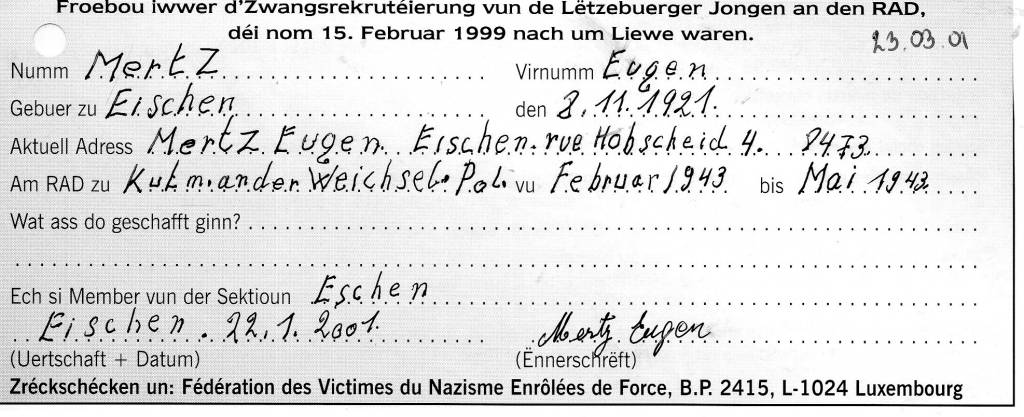 Froebou iwwer d'Zwangsrekrutéierung vun de Lëtzebuerger Jongen an den RAD,
déi nom 15. Februar 1999 nach um Liewe waren.
23.03.01
Numm Mertz Virnumm Eugen
Gebuer zu Eischen den 8.11.1921.
Aktuell Adress Mertz Eugen Eischen. rue Hobscheid 4. 8473
Am RAD zu Kulm. an der Weichsel. Pol. vu Februar 1943 bis Mai 1943
Wat ass do geschafft ginn?
Ech si Member vun der Sektioun Eschen
Eischen. 22.1.2001. Mertz Eugen
(Uertschaft + Datum) (Ënnerschrëft)
Zréckschécken un: Fédération des Victimes du Nazisme Enrôlées de Force, B.P. 2415, L-1024 Luxembourg